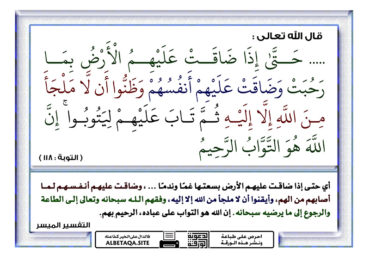 قال الله تعالى :
..... حَـتَّىٰ إِذَا ضَاقَـتْ عَلَيْهِـمُ الْأَرْضُ بِمَـا
رَحُبَتْ وَضَاقَتْ عَلَيْهِمْ أَنفُسُهُمْ وَظَنُّوا أَن لَّا مَلْجَأَ
مِـنَ اللَّهِ إِلَّا إِلَيْـهِ ثُـمَّ تَـابَ عَلَيْهِـمْ لِيَتُوبُـوا ۚ إِنَّ
اللَّهَ هُوَ التَّوَّابُ الرَّحِيمُ
( التوبة : ١١٨ )
أي حتـى إذا ضاقـت عليهـم الأرض بسعتـها غمًـا وندمًـا ... ، وضاقـت عليهـم أنفـسـهـم لمـا
أصابهم من الهم، وأيقنـوا أن لا ملجأ من الله إلا إليه ، وفقهم اللـه سبحانه وتعالى إلى الطاعة
والرجوع إلى ما يرضيه سبحانه . إن الله هو التواب على عباده، الرحيم بهم.
التفسير الميسر
احرص على طباعة
ونشر هذه الورقة
ALBETAQA.SITE